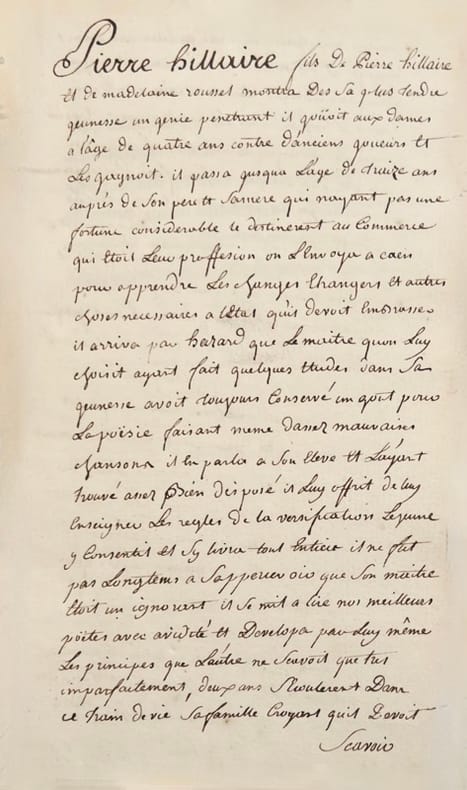 Pierre hillaire fils De Pierre hillaire
Et de madelaine roussel montra Des Sa plus tendre
jeunesse un genie penetrant il joüoit aux dames
a l'âge de quatre ans contre d'anciens joueurs Et
Les gagnoit. il passa jusqua Lage de traize ans
auprés de Son pere Et Samere qui nayant pas une
fortune considerable le destinerent au Commerce
qui Etoit Leur proffesion on L'Envoya a caen
pour apprendre Les changes Etrangers Et autres
choses necessaires a l'Etat qu'il devoit Embrasser
il arriva par hazard que Le maitre quon Luy
choisit ayant fait quelques Etudes dans Sa
jeunesse avoit toujours Conservé un goût pour
La poësie faisant meme dassez mauvaises
chansons il En parla a Son Eleve Et L'ayant
trouvé assez Bien disposé il Luy offrit de luy
Enseigner Les regles de la versification Lejeune
y Consentit Et Sy livra tout Entier il ne fut
pas Longtems a Sappercevoir que Son maitre
Etoit un ignorant il Se mit a lire nos meilleurs
poëtes avec avidité Et Developa par Luy même
Les principes que L'autre ne Scavoit que tres
imparfaitement, deux ans S'Ecoulerent Dans
ce train de vie Sa famille Croyant quil Devoit
Scavoir